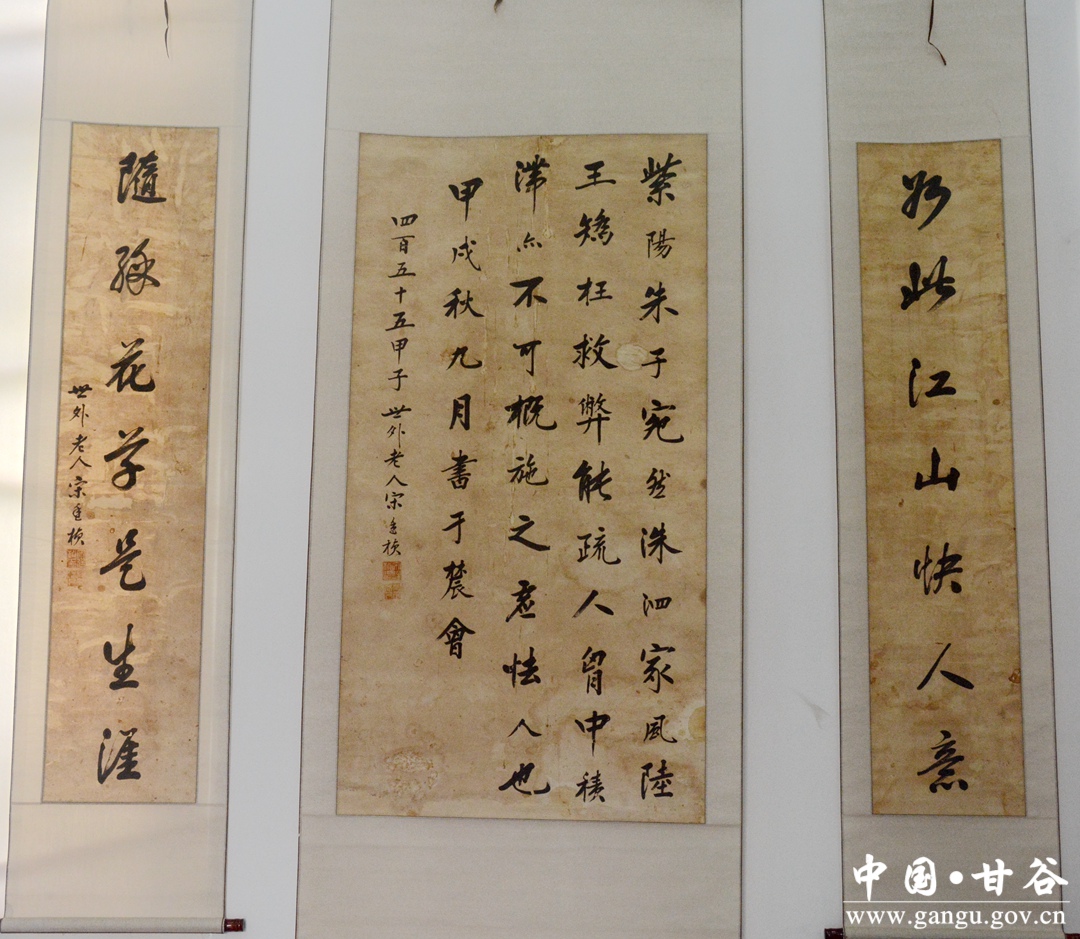 如此江山快人意
紫陽朱子宛然洙泗家風陸
王矯枉救弊能疏人胷中積
滯亦不可概施之意怯人也
甲戌秋九月書于農會
四百五十五甲子世外老人宋
隨緣花学是生涯
世外老人宋
中国·甘谷
www.gangu.gov.cn